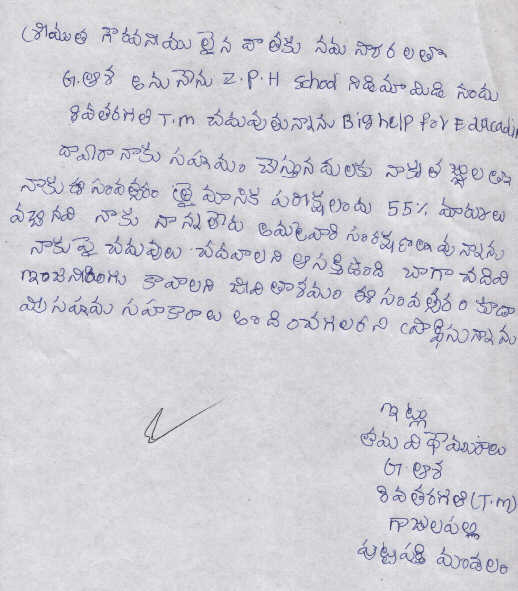 శ్రీయుత గౌరవనీయు లైన దాతకు నమస్కారాలతో
G. ఆశ అను నేను Z.P.H School నిడిమామిడి నందు
8వతరగతి T.m చదువుతున్నాను Bighelp for Education
ద్వారా నాకు సహయం చేస్తున్న దులకు నా కృతజ్ఞతలు
నాకు ఈ సంవత్సరం త్రైమాసిక పరీక్షలందు 55% మార్కులు
వచ్చినవి నాకు నాన్న లేరు అమ్మవారి సంరక్షణలో వున్నాను
నాకు పై చదువులు చదవాలని ఆసక్తి ఉంది బాగా చదివి
ఇంజినీరింగు కావాలని జీవితాశయం ఈ సంవత్సరం కూడా
మీ సహయ సహకారాలు అందించగలరని ప్రార్థిస్తున్నాను
ఇట్లు
తమ విధేయురాలు
G. ఆశ
8వతరగతి (T.m)
గాజులపల్లి
పుట్టపర్తి మండలం